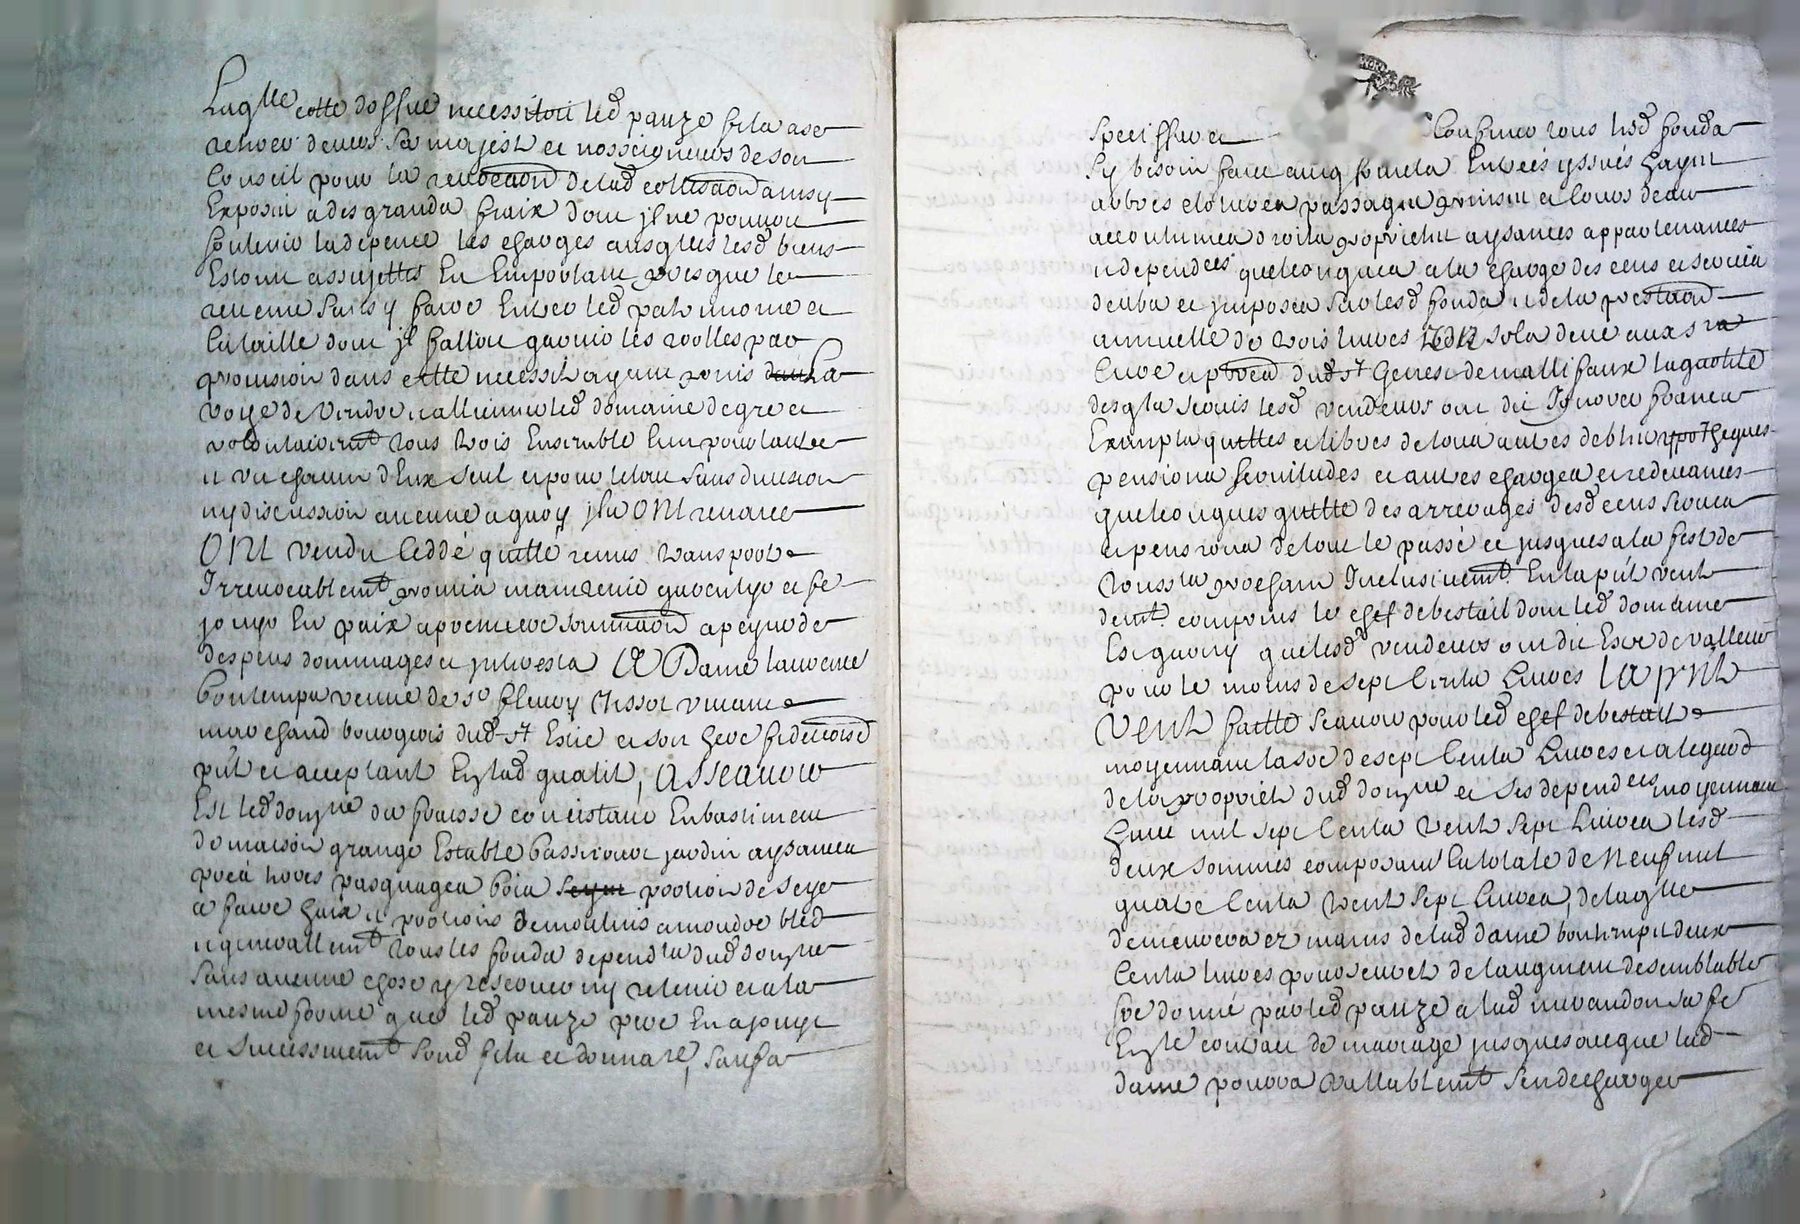 Laq'lle cotte d'office necessitoit led panze fils a se
retirer devers sa majesté et nosseigneurs de son
Conseil pour la revocaon de lad cottisaon ainsy
Exposer a des grands fraix dont il ne pouvoit
soutenir la depence les charges ausqlles lesd biens
Estant assujettis En Emportant presque le
revenu sans y faire Entrer led patrimoine et
la taille dont il falloit garnir les rolles par
provision dans cette necessité ayant pris la
voye de vendre et alliener led domaine de gré et
volontairemt tous trois Ensemble l'un pour l'autre
et un chacun d'Eux seul et pour le tout sans division
ny discussion aucune a quoy ils ONT renoncé
ONT vendu ceddé quitté remis transporté
Irrevocablemt promis maintenir garentyr et fe
jouyr En paix a premiere sommaon a peyne de
despens dommages et interests A Dame laurence
bontemps veuve de sr fleury Tissot vivant
marchand bourgeois dud St Estie et son here fideicoise
pnt et acceptant En lad qualité, ASSCAVOIR
Est led domne de fraisse consistant En bastiment
de maison grange Estable basse cour jardin aysances
prés terres pasquages bois portion de seye
a faire haix et portions de moulins a moudre bled
et generallemt tous les fonds dependts dud domne
sans aucune chose y reserver ny retenir et a la
mesme forme que led panze pere En a jouyt
et successivemt sond fils et donnatre, sauf a
specifier et confiner tous lesd fonds
sy besoin faict avec fonds Entrées yssues hayes
arbres et terres passages prinses et cours d'eau
accoutumés droits proprietes aysances appartenances
et dependces quelconques a la charge des cens et servis
deubs et imposés sur lesd fonds et de la prestaon
annuelle de trois livres sols deue aux srs
Curé et dud St Genest de mallifaux la quotité
desqls servis lesd vendeurs ont dit Ignorer francs
Exempts quittes et libres de tous autres debtes ypotheques
pensions servitudes et autres charges et redevances
quelconques quitte des arrerages desd cens servis
et pensions de tout le passé et jusques a la feste de
Toussts prochain Inclusivemt En la pnt vente
demt compris le chef de bestail dont led domaine
Est garny que lesd vendeurs ont dit Estre de valleur
pour le moins de sept Cents Livres LA PNTE
VENTE faitte scavoir pour led chef de bestail
moyennant la soe de sept Cents Livres et a l'egard
de la proprieté dud domne et ses dependces moyennant
huit mil sept Cents vent sept Livres lesd
deux sommes composant la totale de Neuf mil
quatre Cents vent sept Livres, de laqlle
demeurera ez mains de lad dame bontemps deux
Cents livres pour seureté de l'augment de semblable
soe donné par led panze a lad mirandon sa fe
En le contrat de mariage jusques a ce que lad
dame pourra vallablemt s'en decharger